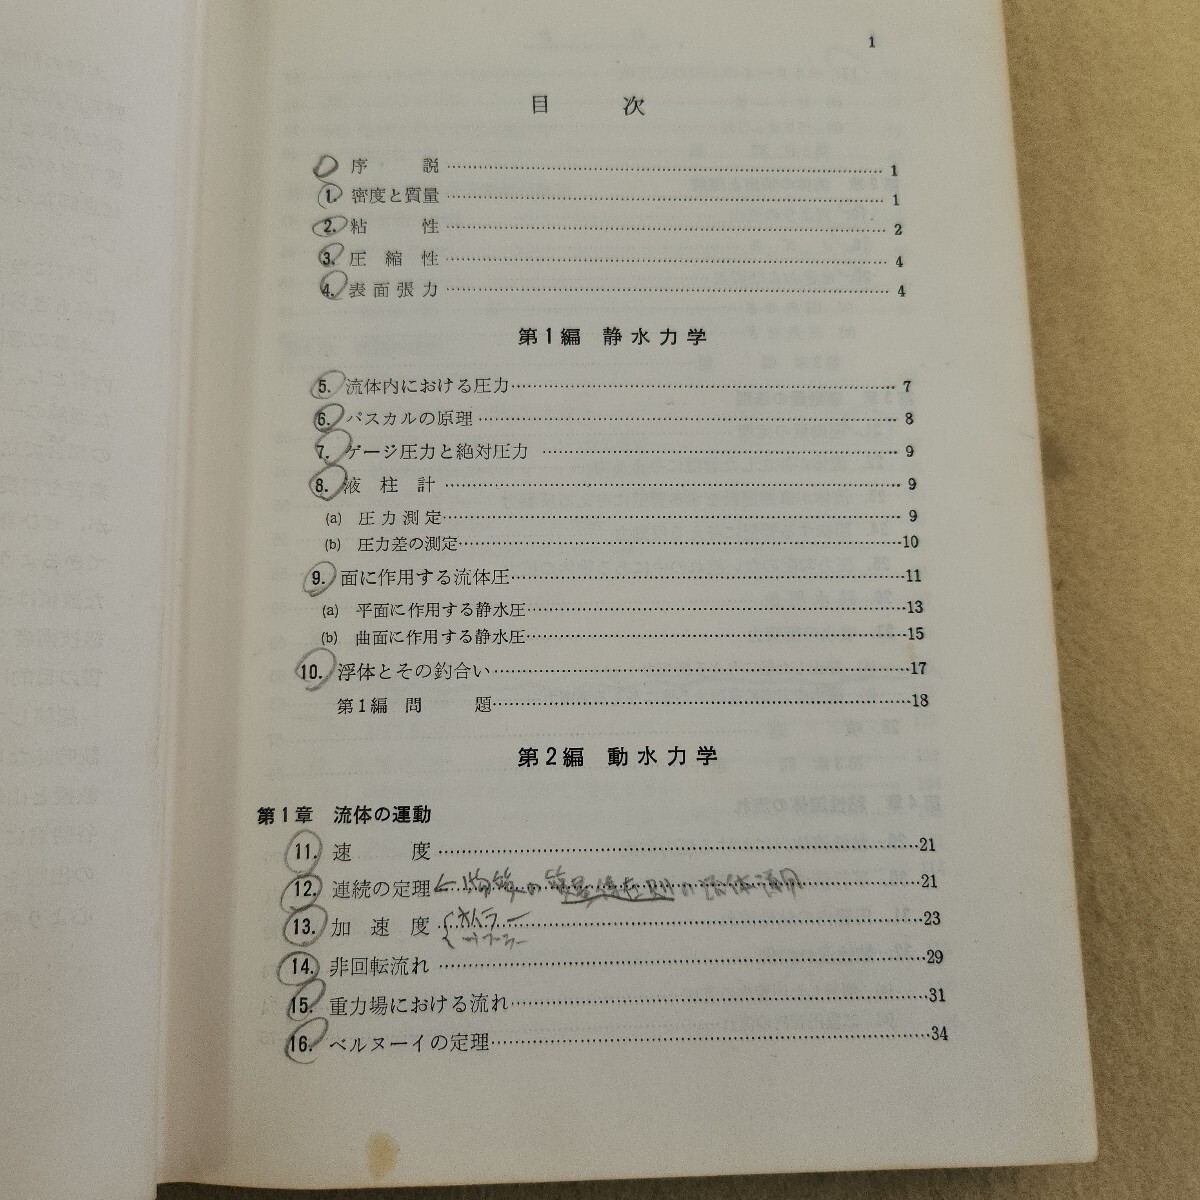 1
目次
序説 1
1. 密度と質量 1
2. 粘性 2
3. 圧縮性 4
4. 表面張力 4
第1編 静水力学
5. 流体内における圧力 7
6. パスカルの原理 8
7. ゲージ圧力と絶対圧力 9
8. 液柱計 9
(a) 圧力測定 9
(b) 圧力差の測定 10
9. 面に作用する流体圧 11
(a) 平面に作用する静水圧 13
(b) 曲面に作用する静水圧 15
10. 浮体とその釣合い 17
第1編 問題 18
第2編 動水力学
第1章 流体の運動
11. 速度 21
12. 連続の定理 21
13. 加速度 23
14. 非回転流れ 29
15. 重力場における流れ 31
16. ベルヌーイの定理 34